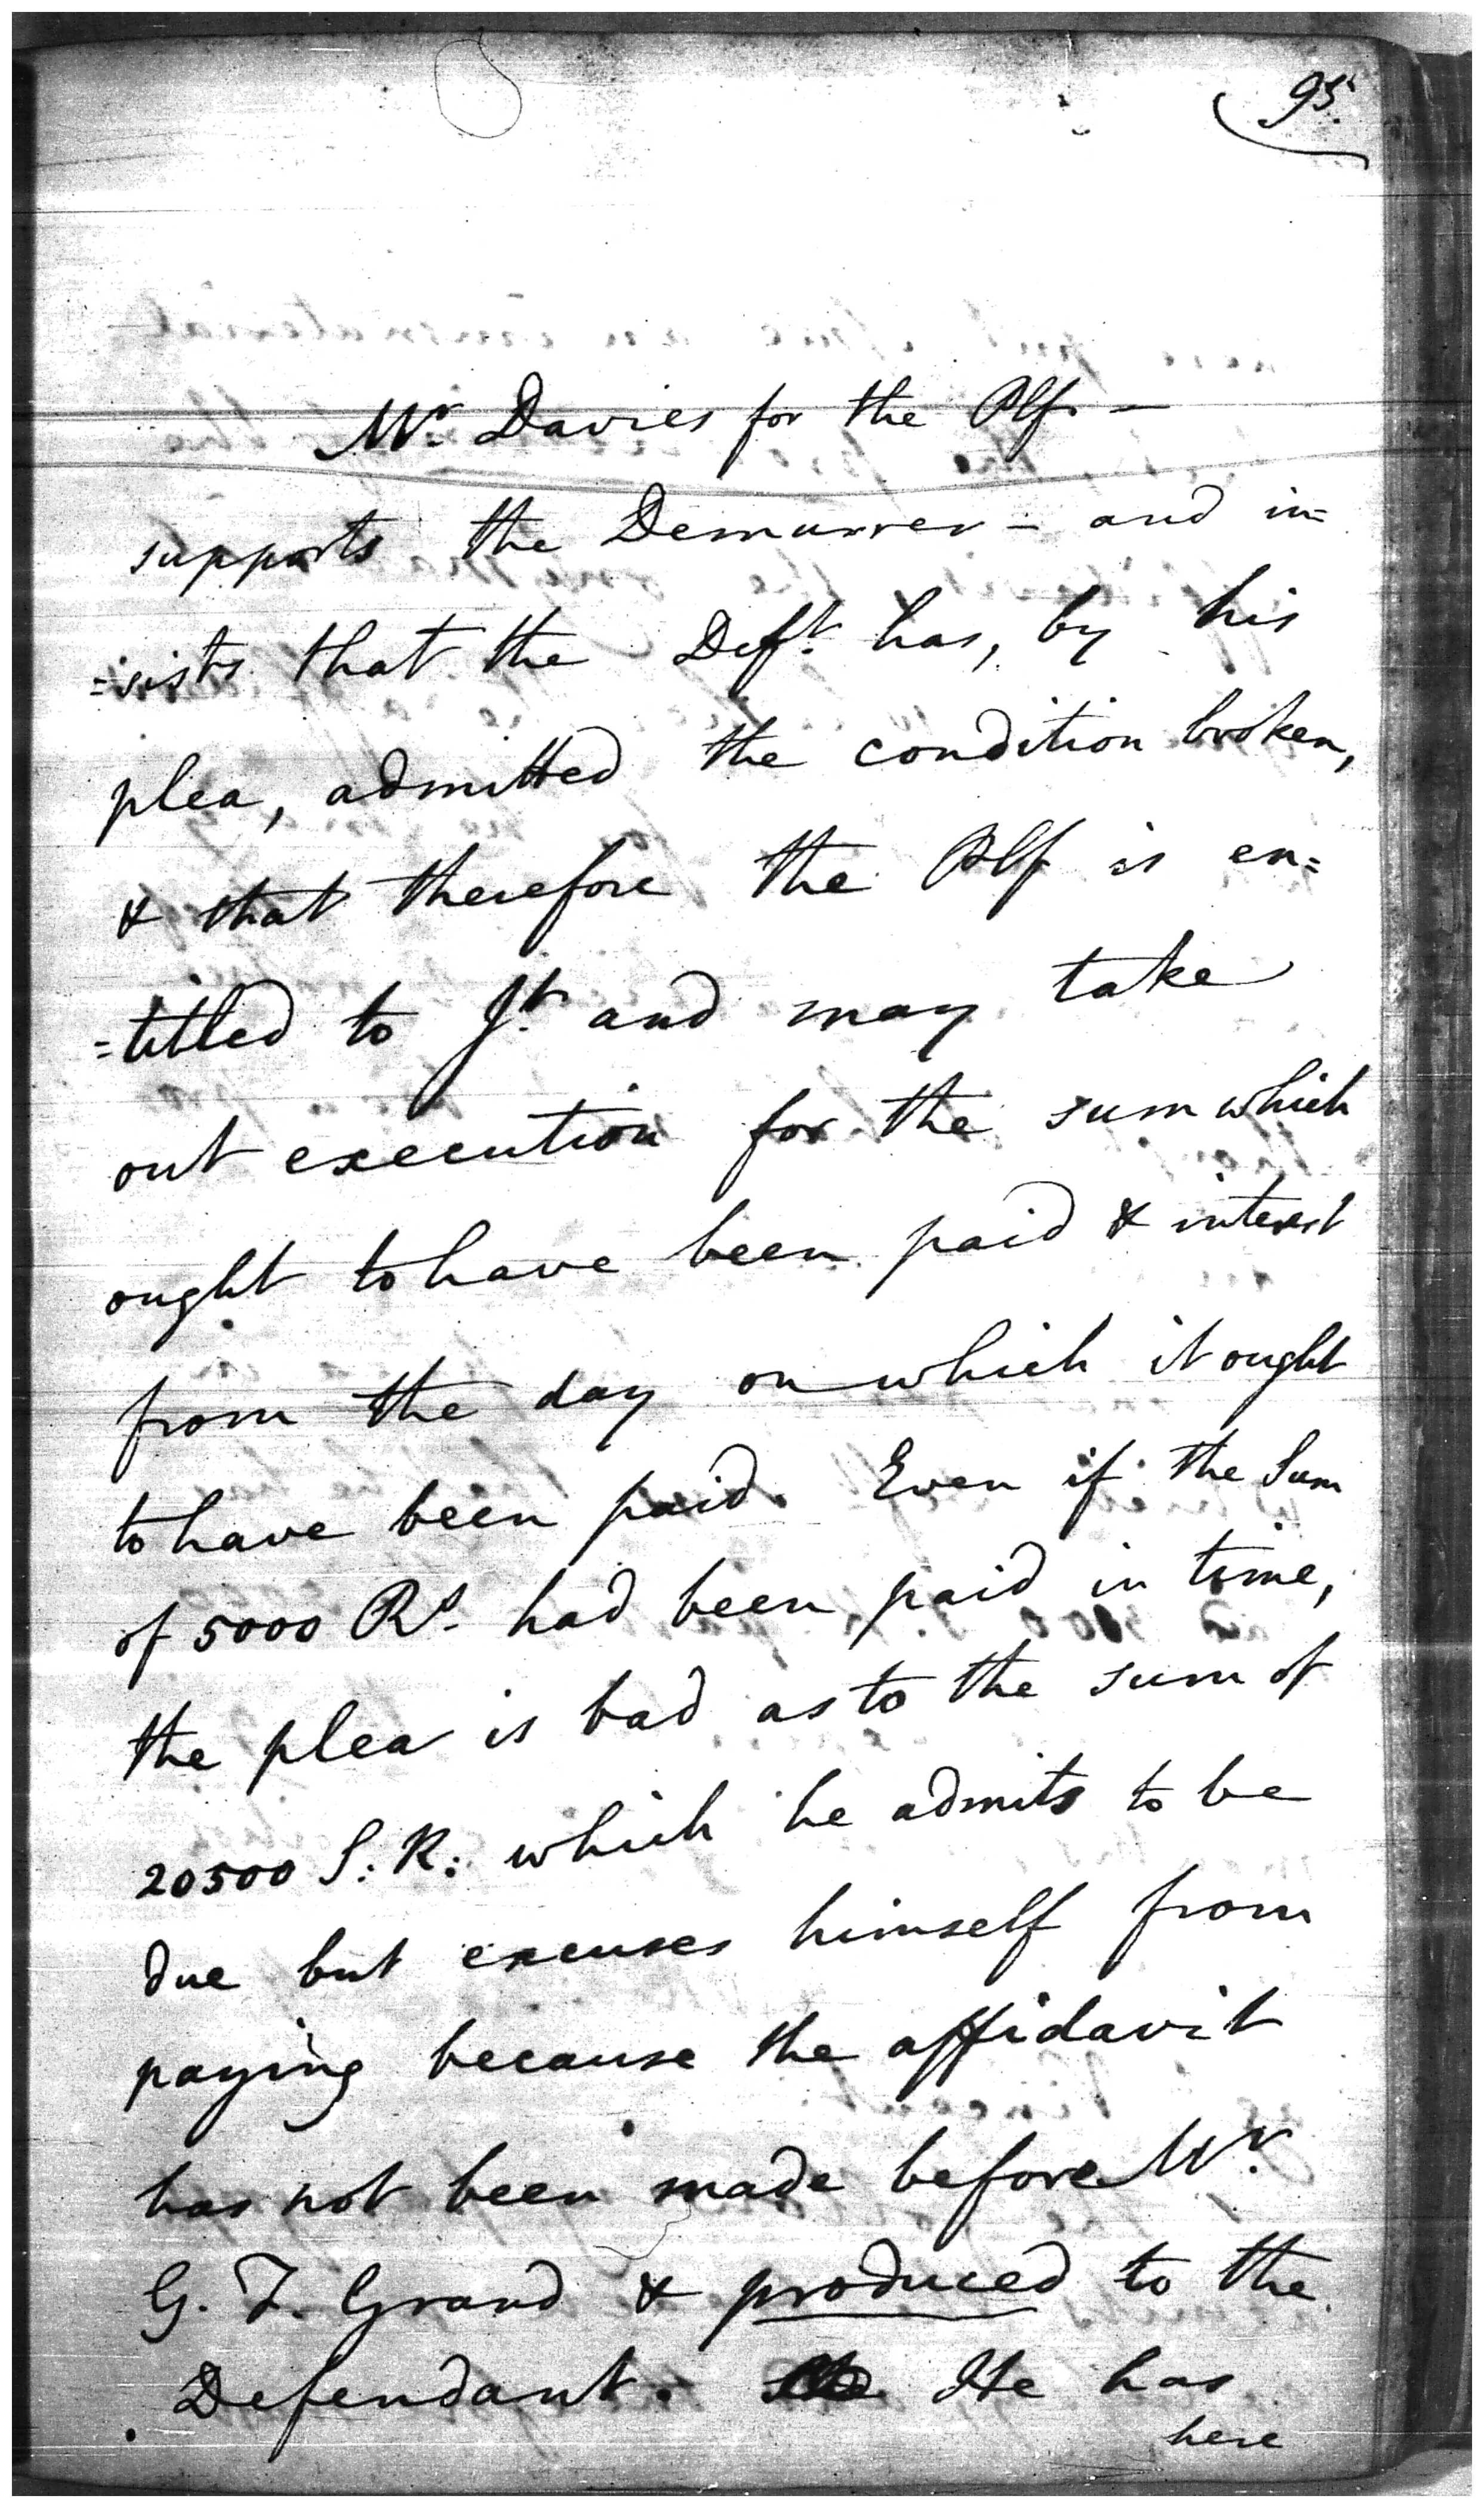 95.
Mr. Davies for the Plf. -
supports the Demurrer - and in=
=sists that the Deft. has, by his
plea, admitted the condition broken,
& that therefore the Plf is en=
=titled to Jt. and may take
out execution for the sum which
ought to have been paid & interest
from the day on which it ought
to have been paid. Even if the Sum
of 5000 Rs. had been paid in time,
the plea is bad as to the sum of
20500 S: R: which he admits to be
due but excuses himself from
paying because the affidavit
has not been made before Mr.
G. F. Grand & produced to the
Defendant. He has
here